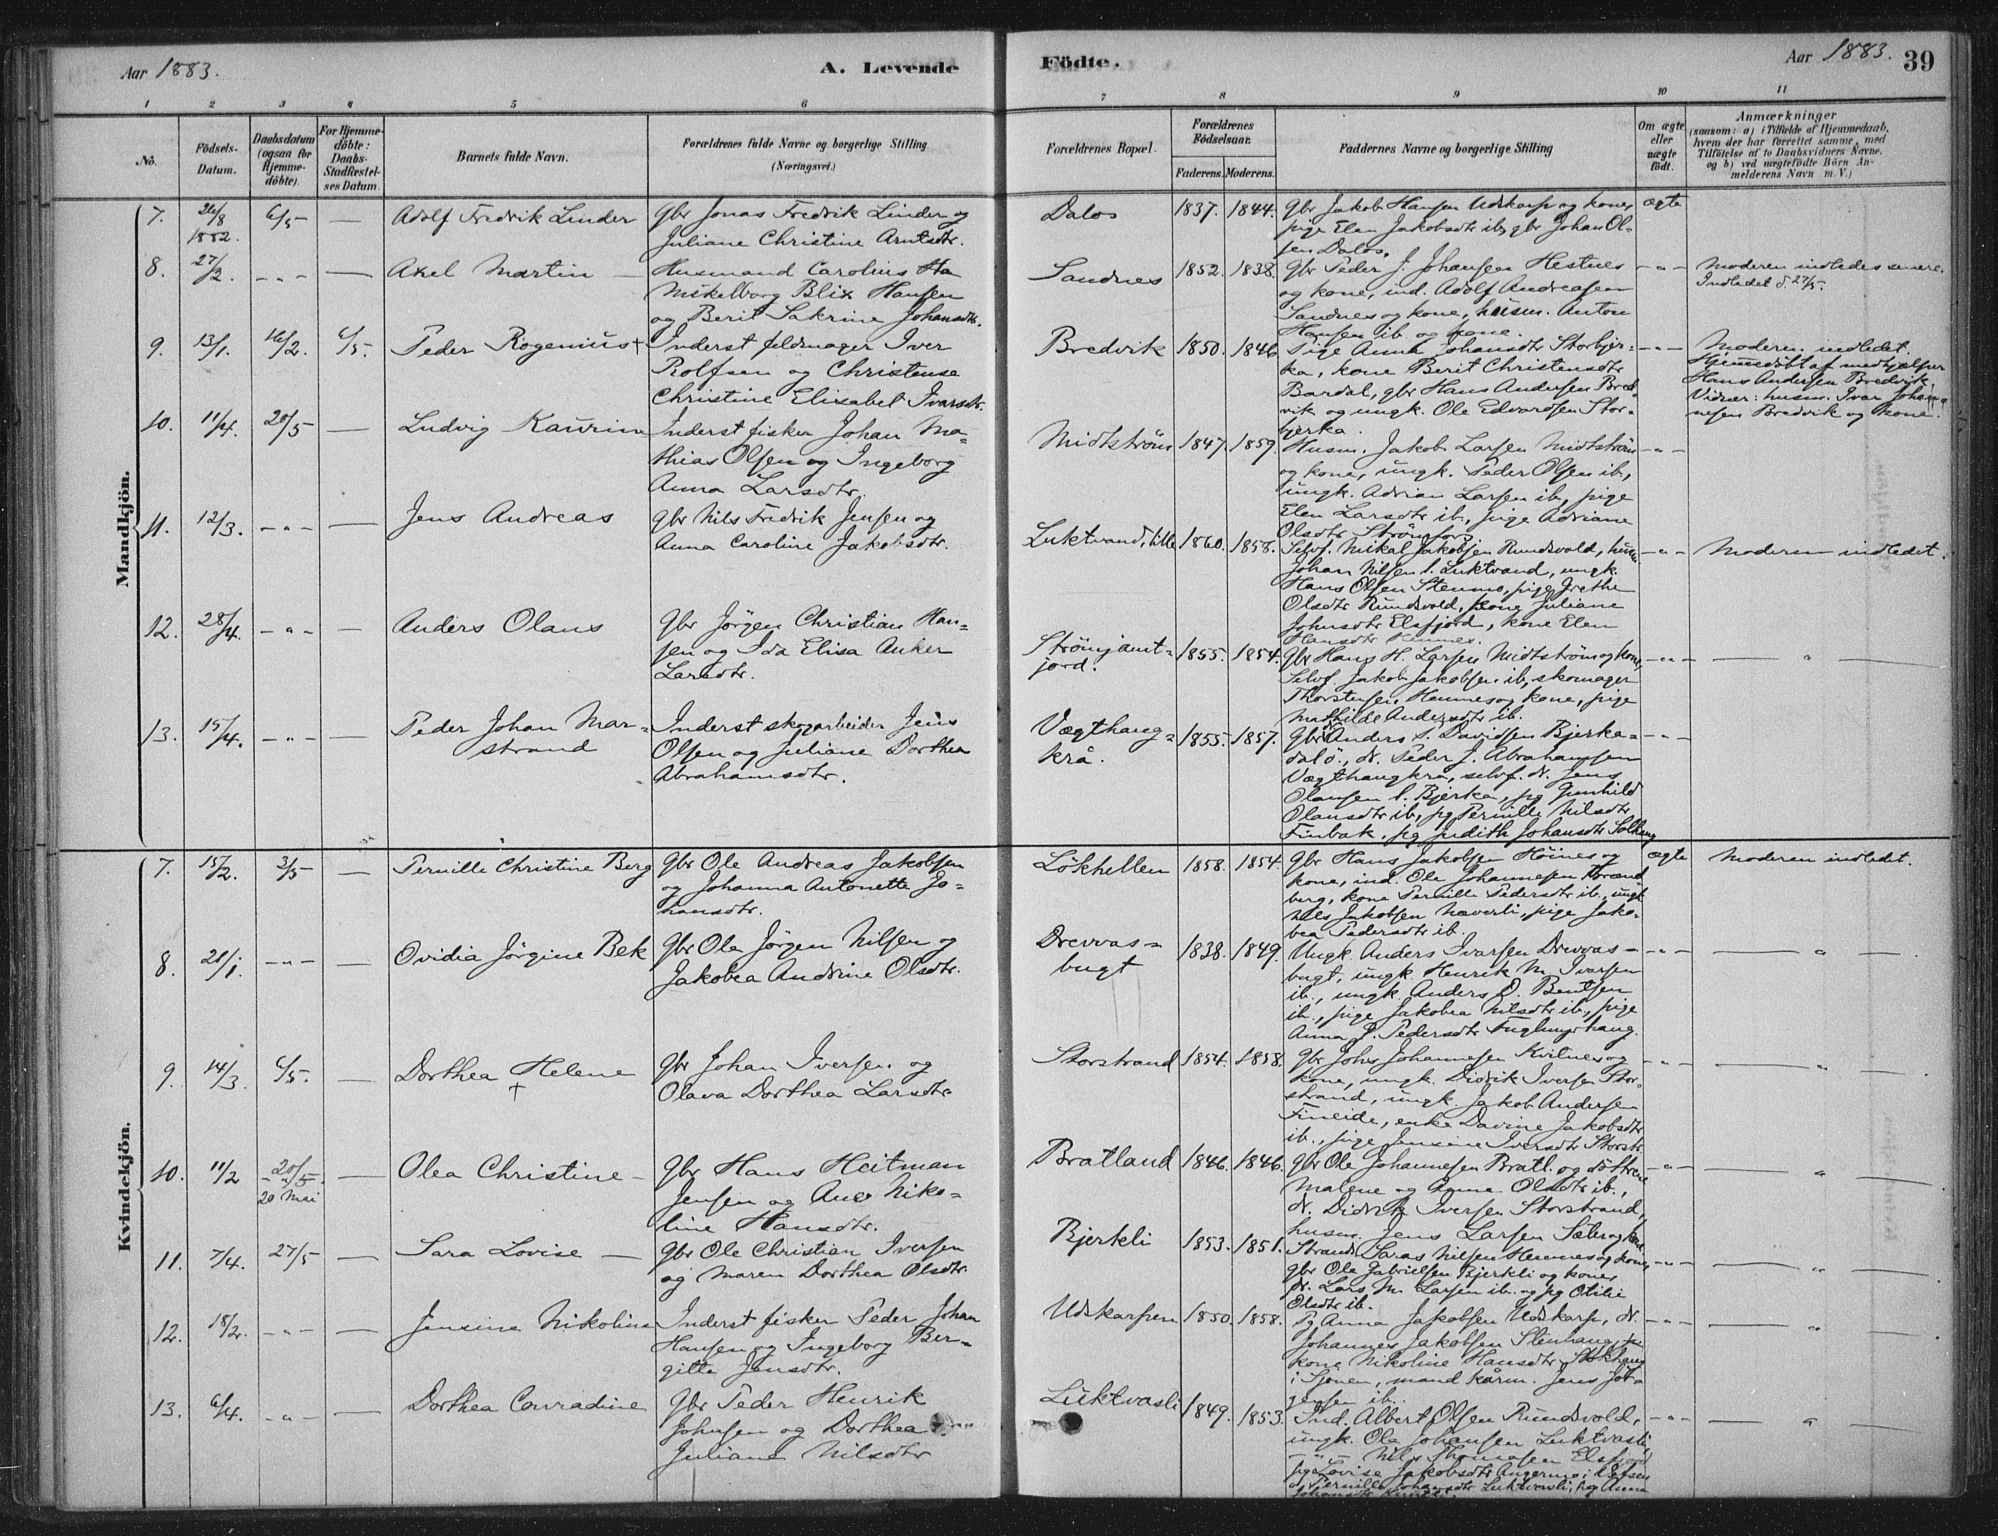 Aar 1883.
A. Levende
Födte.
Aar 1883.
39
1 2 3 4 5 6 7 8 9 10 11
No.
Födsels-
Datum.
Daabsdatum
(ogsaa for
Hjemme-
döbte).
For Hjemme-
döbte:
Daabs-
Stadfæstel-
ses Datum.
Barnets fulde Navn.
Forældrenes fulde Navne og borgerlige Stilling
(Næringsvei.)
Forældrenes Bopæl.
Forældrenes
Födselsaar.
Faderens. Moderens.
Faddernes Navne og borgerlige Stilling
Om ægte
eller
uægte
födt.
Anmærkninger
(saasom: a) i Tilfælde af Hjemmedaab,
hvem der har forrettet samme, med
Tilföielse af to Daabsvidners Navne,
og b) ved uægtefödte Börn An-
melderens Navn m. V.)
Mandkjön.
7. 26/8 1882. 6/5 — Adolf Fredrik Linder
Gbr Jonas Fredrik Linder og
Juliane Christine Arntsdtr.
Dalos 1837. 1844.
Gbr Jakob Hansen Utskarp og kone,
pige Elen Jakobsdtr ib, gbr Johan Ol-
sen Dalos.
ægte
8. 27/2. -"- — Axel Martin —
Husmand Carolius Ha
Mikelborg Blix Hansen
og Berit Sakrine Johansdtr.
Sandnes 1852. 1838.
Gbr Peder J. Johansen Hestnes
og kone, ind. Adolf Andreasen
Sandnes og kone, husm. Anton
Hansen ib og kone.
-"-
Moderen indledes senere.
Indledet d. 27/5.
9. 13/1. 16/2. 6/5. Peder Rogenius +
Inderst feldmager Iver
Rolfsen og Christense
Christine Elisabet Ivarsdtr.
Bredvik 1850. 1846
Pige Anna Johansdtr Storbjer-
ka, kone Berit Christensdtr
Bardal, gbr Hans Andersen Bred
vik og ungk. Ole Edvardsen Stor-
bjerka.
-"-
Moderen indledet.
Hjemmedöbt af medhjælper
Hans Andersen Bredvik,
Vidner: husm. Ivar Johan
nesen Bredvik og kone.
10. 11/4. 20/5 — Ludvig Kaurin
Inderst fisker Johan Ma-
thias Olsen og Ingeborg
Anna Larsdtr.
Midtström 1847. 1859.
Husm. Jakob Larsen Midtström
og kone, ungk. Peder Olsen ib,
ungk. Adrian Larsen ib, pige
Elen Larsdtr ib, pige Adriane
Olsdtr
-"-
11. 12/3. -"- — Jens Andreas
Gbr Nils Fredrik Jensen og
Anna Caroline Jakobsdtr.
Luktvand, lille 1860. 1858.
Selvf. Mikal Jakobsen Rundvold, husm.
Johan Nilsen l. Luktvand, ungk.
Hans Olsen Stenmo, pige Grethe
Olsdtr Rundvold, kone Juliane
Johnsdtr Elsfjord, kone Elen
Hansdtr Hemnes.
-"-
Moderen indledet.
12. 28/4. -"- — Anders Olaus
Gbr Jörgen Christian Han-
sen og Ida Elisa Anker
Larsdtr.
1855. 1854.
Gbr Hans H. Larsen Midtström og kone,
Selvf. Jakob Jakobsen ib, skomager
Thorstensen Hemnes og kone, pige
Mathilde Andersdtr ib.
-"-
— " —
13. 15/4. -"- — Peder Johan Mar-
strand
Inderst skogarbeider Jens
Olsen og Juliane Dorthea
Abrahamsdtr.
Vægthaug-
krå. 1855. 1857.
Gbr Anders P. Davidsen Bjerka-
dalö, dr. Peder J. Abrahamsen
Vægthaugkrå, selvf. dr. Jens
Olausen l. Bjerka, pg Gunhild
Olausdtr ib, pg Pernille Nilsdtr
Finbak, pg Judith Johansdtr
-"-
Kvindekjön.
7. 15/2. 3/5 — Pernille Christine Berg
Gbr Ole Andreas Jakobsen
og Johanna Antonette Jo-
hansdtr.
Lökhellen 1858. 1854.
Gbr Hans Jakobsen Höines og
kone, ind. Ole Johannesen
berg, kone Pernille Pedersdtr ib, ungk
Nils Jakobsen Næverli, pige Jako-
bea Pedersdtr ib.
ægte
Moderen indledet.
8. 21/1. -"- — Ovidia Jörgine Bek
Gbr Ole Jörgen Nilsen og
Jakobea Andrine Olsdtr.
Drevvas-
bugt 1838. 1849.
Ungk. Anders Ivarsen Drevvas-
bugt, ungk. Henrik M. Ivarsen
ib., ungk. Anders D. Bentsen
ib., pige Jakobea Nilsdtr ib, pige
Anna J. Pedersdtr
-"-
— " —
9. 14/3. 6/5. — Dorthea Helene
+
Gbr Johan Iversen og
Olava Dorthea Larsdtr.
Storstrand 1854. 1858.
Gbr Johs Johannesen Kvitnes og
kone, ungk. Didrik Iversen Stor-
strand, ungk. Jakob Andersen
Fineide, enke Davine Jakobsdtr
ib., pige Jensine Iversdtr Storstr.
-"-
— " —
10. 11/2 20/5 20 Mai — Olea Christine —
Gbr Hans Heitman
Jensen og Ane Niko-
line Hansdtr.
Bratland 1846. 1846.
Gbr Ole Johannesen Bratl. og
Malene og Anne Olsdtr ib.,
dr. Didrik Iversen Storstrand,
husm. Jens Larsen Sæter og kone
-"-
— " —
11. 7/4. 27/5 — Sara Lovise —
Gbr Ole Christian Iversen
og Maren Dorthea Olsdtr.
Bjerkli 1853. 1851.
Nilsen Hemnes og kone,
gbr Ole Gabrielsen Bjerkli og kone,
dr. Lars M. Larsen ib. og pg Otilie
Olsdtr ib.
-"-
— " —
12. 18/2. -"- — Jensine Nikoline
Inderst fisker Peder Johan
Hansen og Ingeborg Ber-
gitte Jensdtr.
Utskarpen 1850. 1858.
Pg Anna Jakobsen Utskarp, dr.
Johannes Jakobsen Stenhaug,
kone Nikoline Hansdtr
i Sjonen, mand kårm. Jens Jör-
gensen ib.
-"-
— " —
13. 6/4. -"- — Dorthea Conradine
Gbr Peder Henrik
Johnsen og Dorthea
Juliane Nilsdtr
Luktvasli 1849. 1853.
Ind. Albert Olsen Rundvold,
ungk. Ole Johansen Luktvasli
-"- Nils Thomesen Elsfjord
pige Lovise Jakobsdtr
Pernille Johansdtr Luktvasli, pg Anna
-"-
— " —